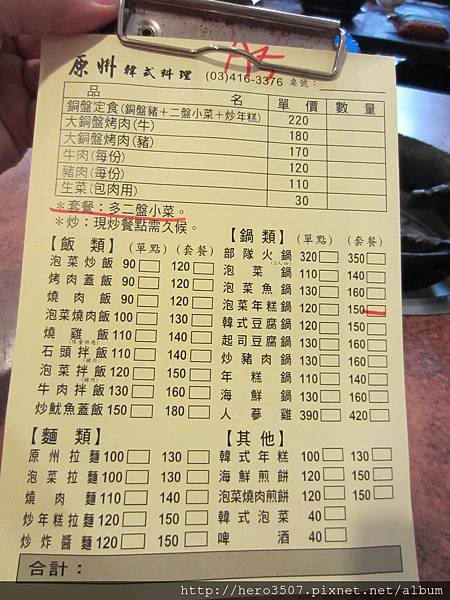 原州 韓式料理 (03)416-3376 桌號：
A5
品名 單價 數量
銅盤定食(銅盤豬＋二盤小菜＋炒年糕) 220
大銅盤烤肉(牛) 180
大銅盤烤肉(豬) 170
牛肉(每份) 120
豬肉(每份) 110
生菜(包肉用) 30
＊套餐：多二盤小菜。
＊炒：現炒餐點需久候。
【飯類】(單點) (套餐)
泡菜炒飯 90 120
烤肉蓋飯 90 120
燒肉飯 90 120
泡菜燒肉飯 100 130
燒雞飯 110 140
石頭拌飯 110 140
泡菜拌飯 120 150
牛肉拌飯 130 160
炒魷魚蓋飯 150 180
【鍋類】(單點) (套餐)
部隊火鍋 320 350
泡菜鍋 110 140
泡菜魚鍋 130 160
泡菜年糕鍋 120 150
韓式豆腐鍋 120 150
起司豆腐鍋 130 160
炒豬肉鍋 130 160
年糕鍋 110 140
海鮮鍋 130 160
人蔘雞 390 420
【麵類】
原州拉麵 100 130
泡菜拉麵 100 130
燒肉麵 110 140
炒年糕拉麵 120 150
炒炸醬麵 120 150
【其他】
韓式年糕 100 130
海鮮煎餅 120 150
泡菜燒肉煎餅 120 150
韓式泡菜 40
啤酒 40
合計：
http://hero3507.pixnet.net/album